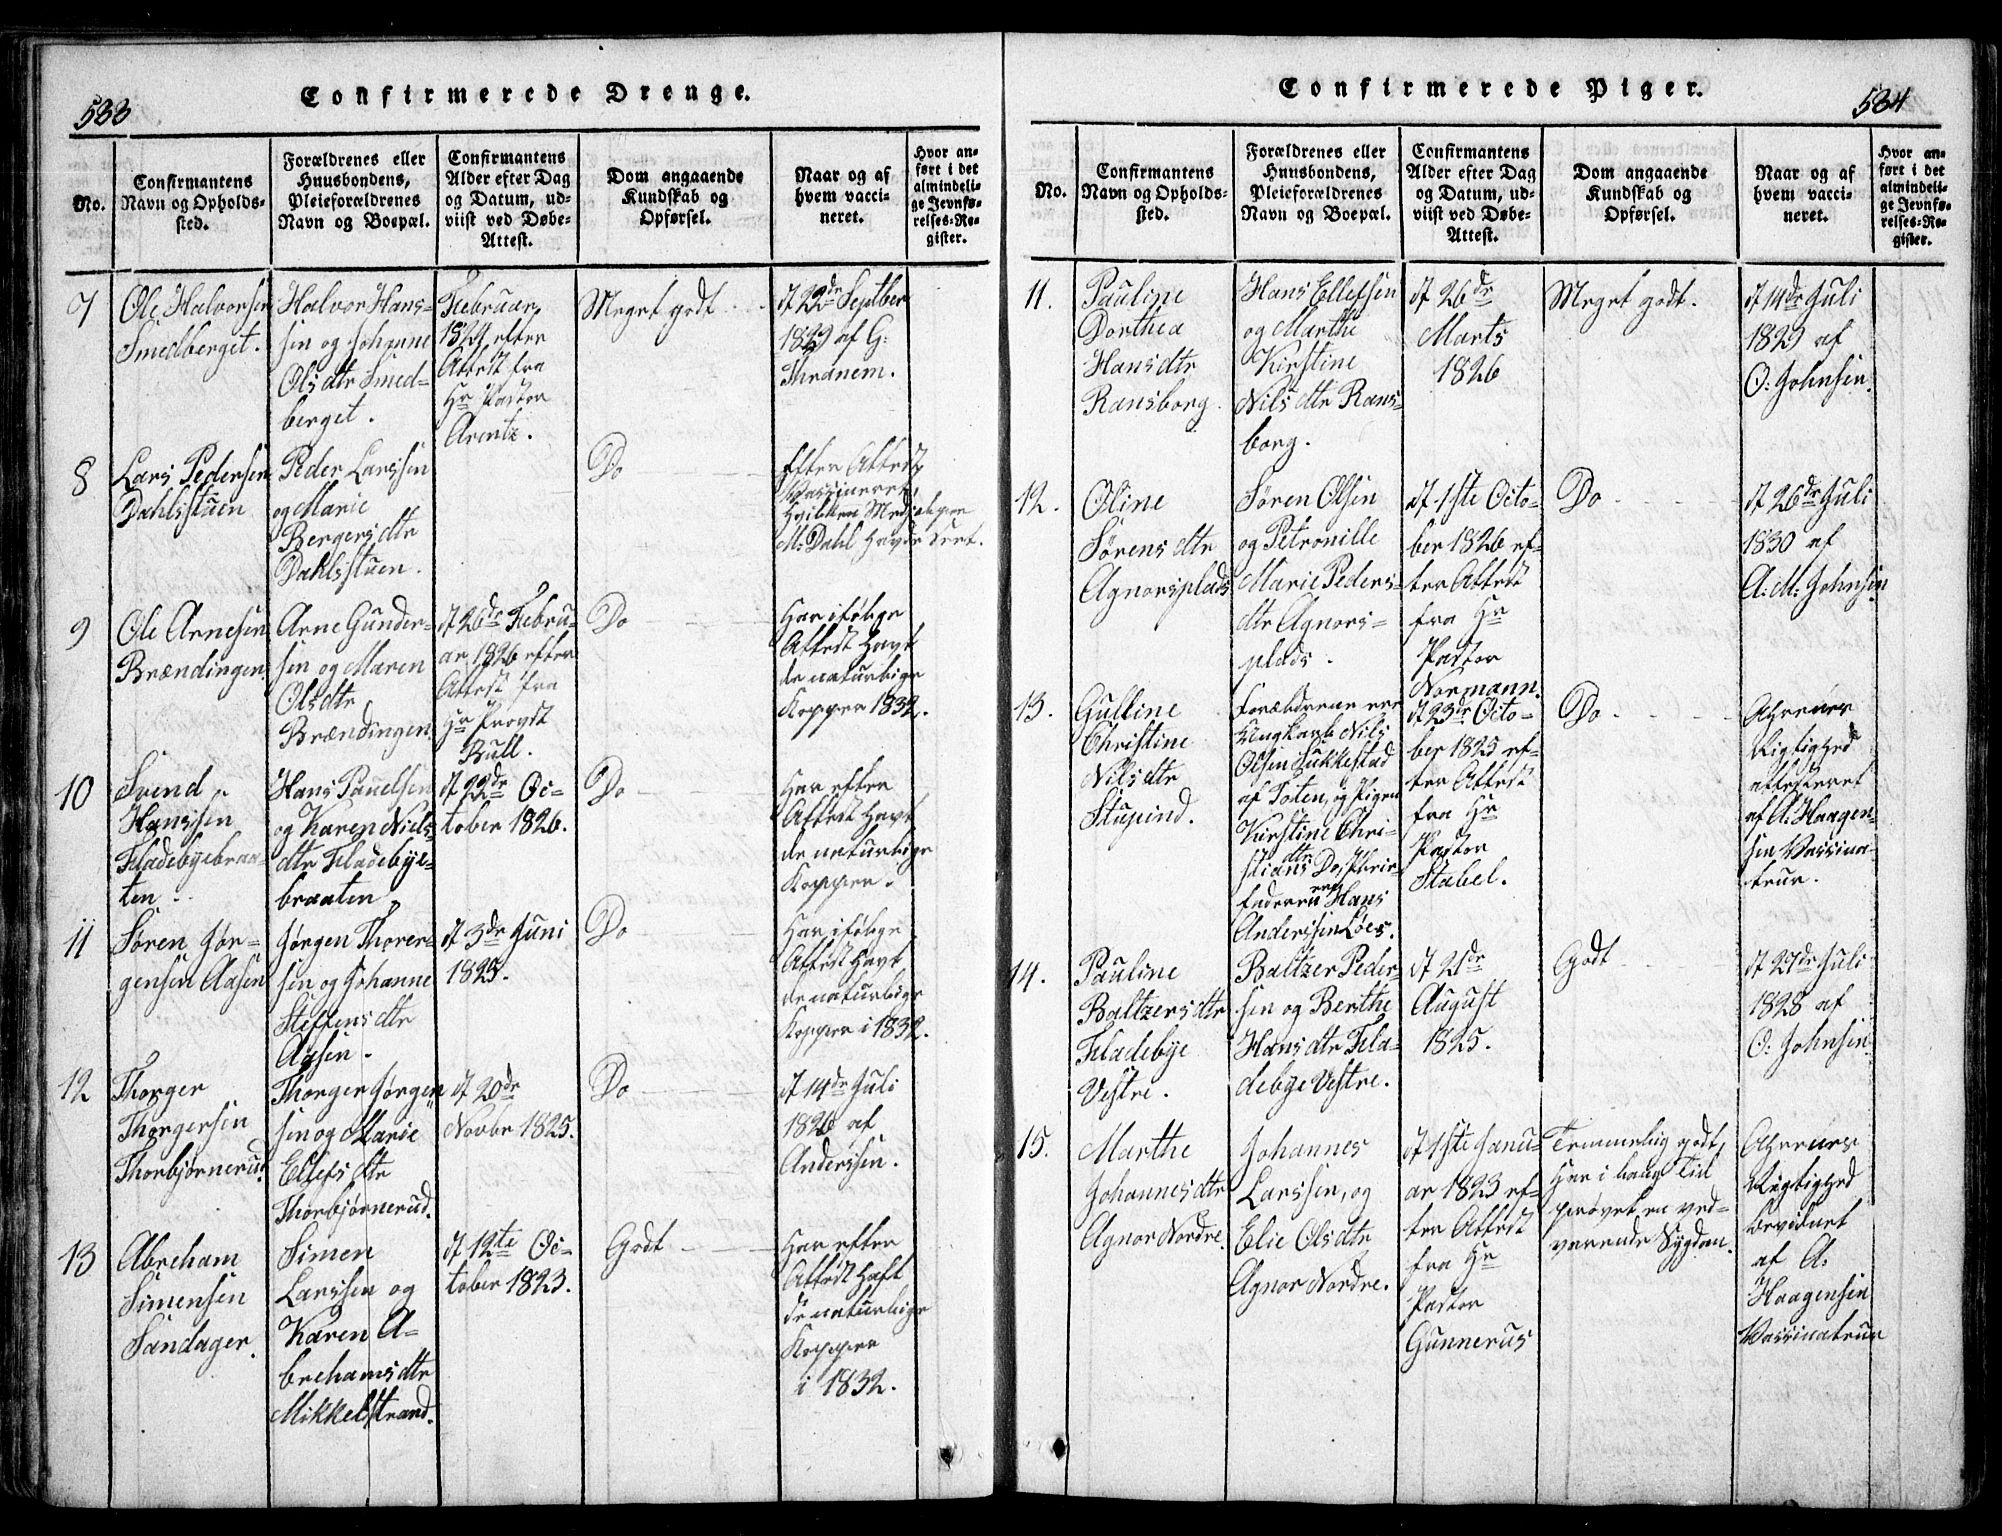 533
Confirmerede Drenge.
No.
Confirmantens
Navn og Opholds-
sted.
Forældrenes eller
Huusbondens,
Pleieforældrenes
Navn og Boepæl.
Confirmantens
Alder efter Dag
og Datum, ud-
viist ved Døbe-
Attest.
Dom angaaende
Kundskab og
Opførsel.
Naar og af
hvem vacci-
neret.
Hvor an-
ført i det
almindeli-
ge Jevnfø-
relses-Re-
gister.
7
Ole Halvorsen
Smedberget.
Halvor Hans-
sen og Johanne
Ols dtr Smed-
berget.
Februar
1824 efter
Attest fra
Hr Pastor
Arentz.
Meget godt
d 22de Septber
1829 af G:
Thranem.
8
Lars Pedersen
Dahlsstuen
Peder Larssen
og Marie
Bergers dtr
Dahlsstuen.
Do
Efter Attest
Vaccineret,
hvilken
M: Dahl havde
9
Ole Arnesen
Brændingen
Arne Gunder-
sen og Maren
Ols dtr
Brændingen
d 26de Febru-
ar 1826 efter
Attest fra
Hr Provst
Bull.
Do
Har ifølge
Attest havt
de naturlige
Kopper 1832.
10
Svend
Hanssen
Fladebyebraa-
ten.
Hans Pauelsen
og Karen Niels-
dtr Fladebye-
braaten.
d 22de Oc-
tober 1826.
Do
Har efter
Attest havt
de naturlige
Kopper.
11
Søren Jør-
gensen Aasen
Jørgen Thorer-
sen og Johanne
Steffens dtr
Aasen.
d 3de Juni
1825.
Do
Har ifølge
Attest havt
de naturlige
Kopper i 1832.
12
Thorger
Thorgersen
Thorbjørnerud.
Thorger Jørgen-
sen og Marie
Ellefs dtr
Thorbjørnerud.
d 20de
Novbr 1825.
Do
d 14de Juli
1826 af
Anderssen.
13
Abreham
Simensen
Sandager.
Simen
Larssen og
Karen A-
brehams dtr
Mikkelstrand.
d 12te Oc-
tober 1823.
Godt
Har efter
Attest haft
de naturlige
Kopper
i 1832.
Confirmerede Piger.
534
No.
Confirmantens
Navn og Opholds-
sted.
Forældrenes eller
Huusbondens,
Pleieforældrenes
Navn og Boepæl.
Confirmantens
Alder efter Dag
og Datum, ud-
viist ved Døbe-
Attest.
Dom angaaende
Kundskab og
Opførsel.
Naar og af
hvem vacci-
neret.
Hvor an-
ført i det
almindeli-
ge Jevnfø-
relses-Re-
gister.
11.
Pauline
Dorthea
Hans dtr
Ransborg.
Hans Ellefsen
og Marthe
Kirstine
Nils dtr Rans-
borg.
d 26de
Marts
1826
Meget godt.
d 14de Juli
1829 af
O: Johnsen.
12.
Oline
Sørens dtr
Agnorsplads
Søren Olsen
og Petronille
Marie Peders-
dtr Agnors-
plads.
d 1ste Octo-
ber 1826 ef-
ter Attest
fra Hr
Pastor
Normann.
Do
d 26de Juli
1830 af
A: M: Johnsen
13.
Gulline
Christine
Nils dtr
Stupind.
Forældrene ere
Ungkarl Nils
Olsen Lukkestad
af Toten, og Pigen
Kirstine Chri-
stians dtr Do, Pleie-
faderen er Hans
Anderssen Løes.
d 23de Octo-
ber 1825 ef-
ter Attest
fra Hr
Pastor
Stabel.
Do
Ahrenes
Rigtighed
attesteret
af A: Haagen-
sen Vaccina-
teur.
14.
Pauline
Baltzers dtr
Fladebye
Vestre.
Baltzer Peder-
sen og Berthe
Hans dtr Fla-
debye Vestre.
d 21de
August
1825.
Godt
d 27de Juli
1828 af
O: Johnsen.
15.
Marthe
Johannes dtr
Agnor Nordre.
Johannes
Larssen, og
Elie Ols dtr
Agnor Nordre.
d 1ste Janu-
ar 1823 ef-
ter Attest
fra Hr
Pastor
Gunnerus
Temmelig godt,
Har i lang Tid
prøvet en ved-
varende Sygdom.
Ahrenes
Rigtighed
bevidnet
af A:
Haagensen
Vaccinateur